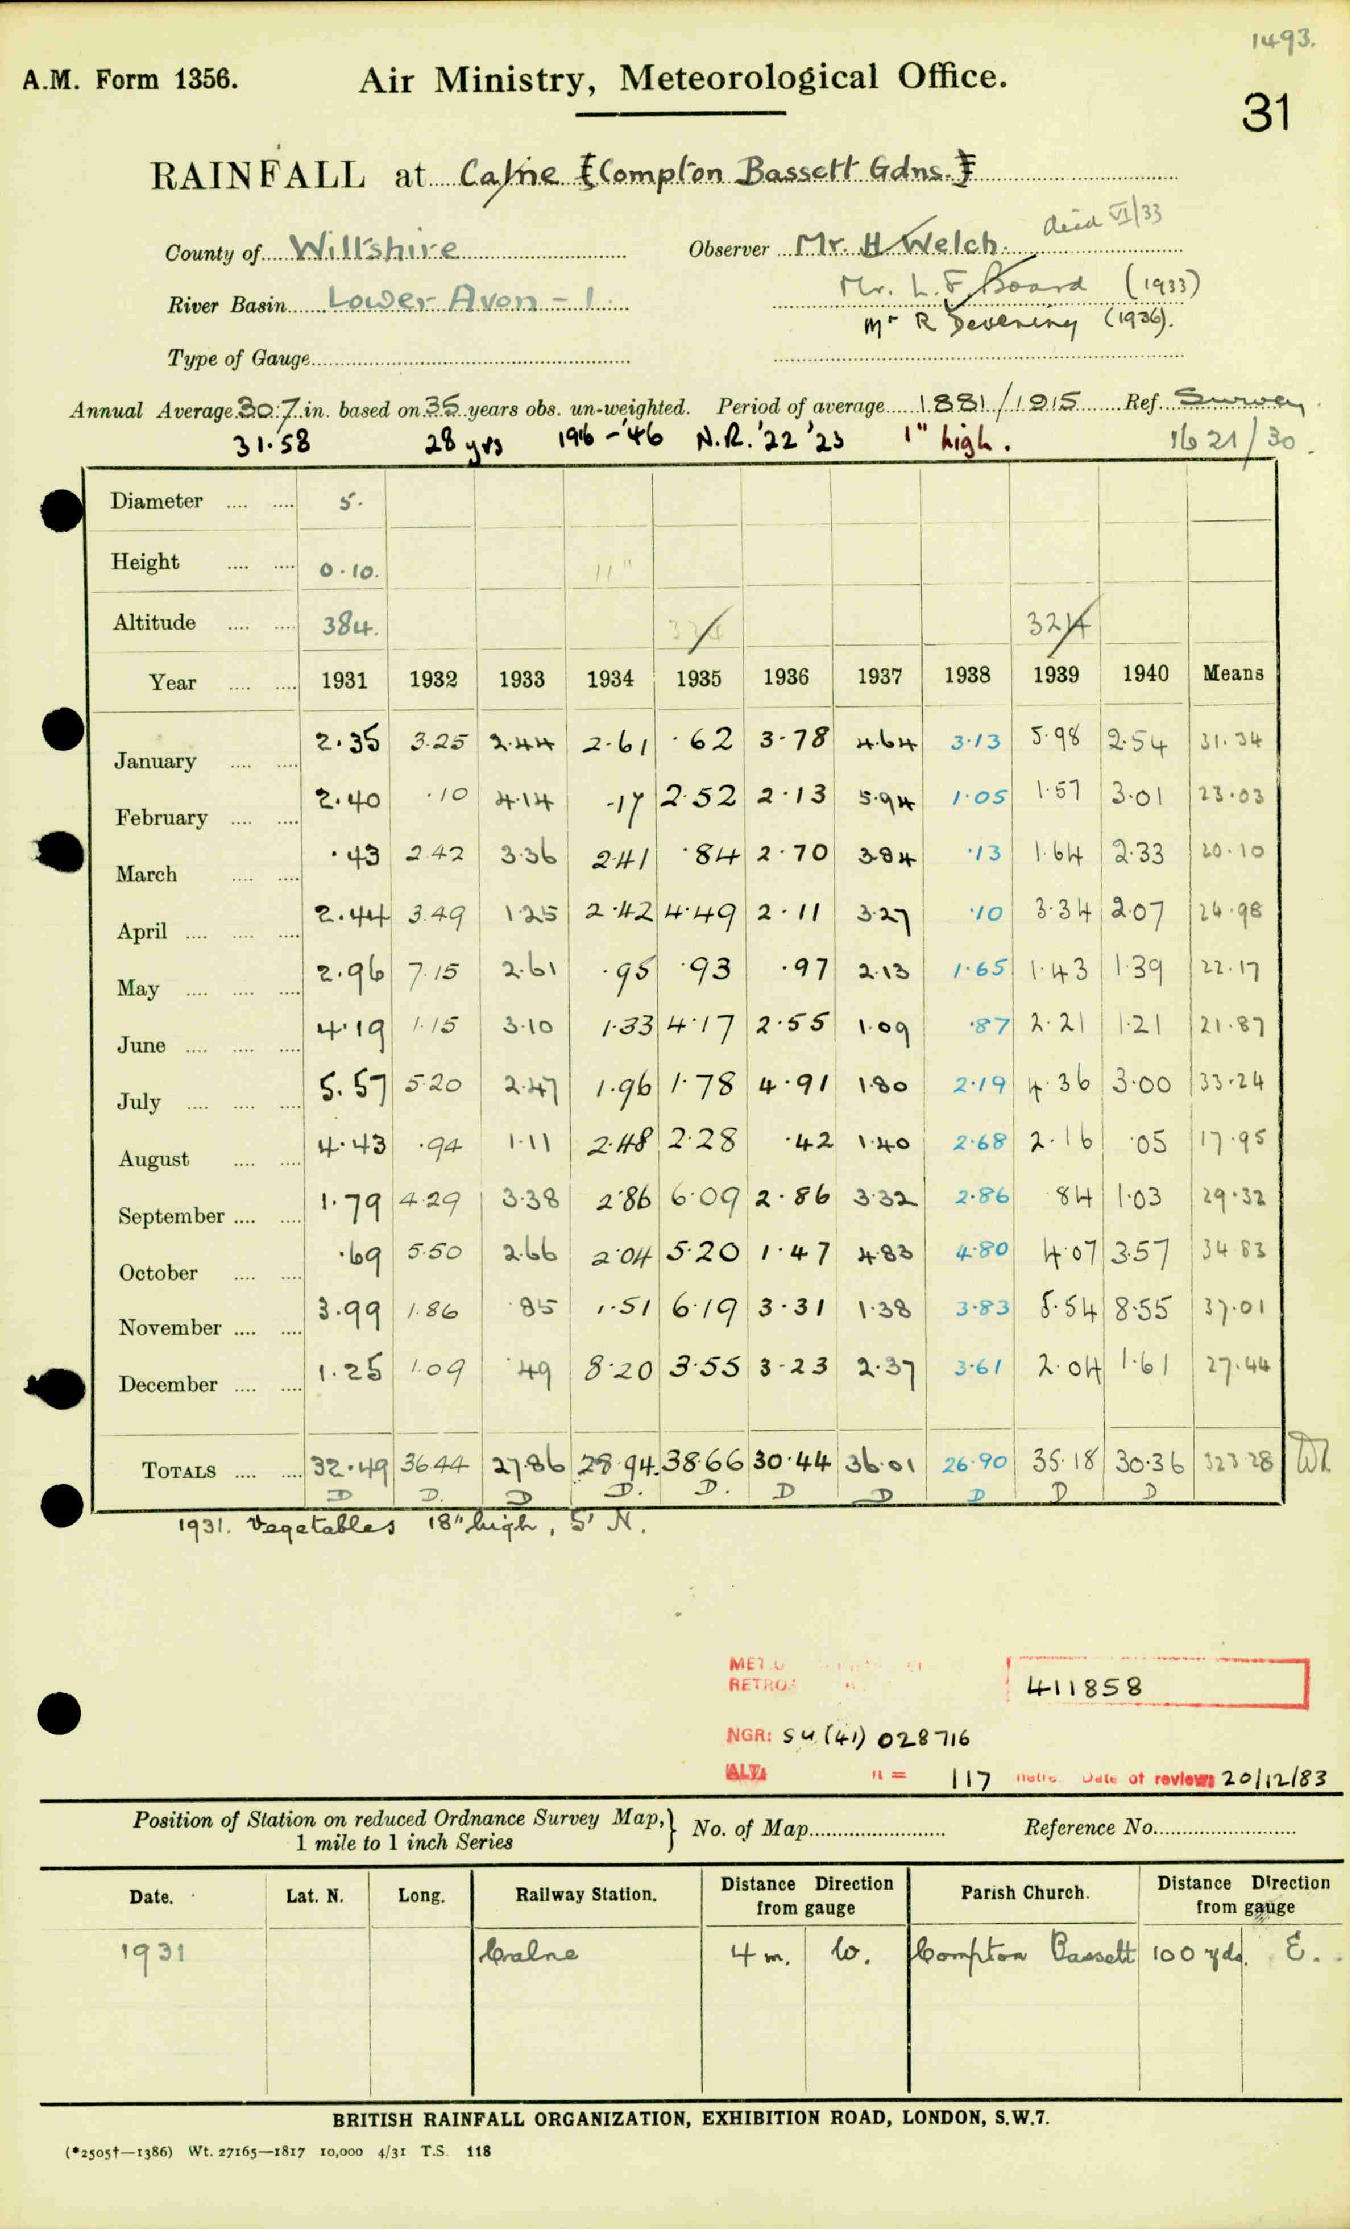 1493.
A.M. Form 1356. Air Ministry, Meteorological Office.
31
RAINFALL at Calne [Compton Bassett Gdns.]
County of Wiltshire Observer Mr. H Welch. died VI/33
River Basin Lower Avon - 1. Mr. L. F. Board (1933)
Mr R Devening (1936).
Type of Gauge
Annual Average 30.7 in. based on 35 years obs. un-weighted. Period of average 1881/1915 Ref. Survey
31.58 28 yrs 1916-'46 N.R. '22 '23 1" high. 1621/30.
Diameter 5.
Height 0.10. 11"
Altitude 384. 324 324
Year 1931 1932 1933 1934 1935 1936 1937 1938 1939 1940 Means
January 2.35 3.25 2.44 2.61 .62 3.78 4.64 3.13 5.98 2.54 31.34
February 2.40 .10 4.14 .17 2.52 2.13 5.94 1.05 1.57 3.01 23.03
March .43 2.42 3.36 2.41 .84 2.70 3.84 .13 1.64 2.33 20.10
April 2.44 3.49 1.25 2.42 4.49 2.11 3.27 .10 3.34 2.07 24.98
May 2.96 7.15 2.61 .95 .93 .97 2.13 1.65 1.43 1.39 22.17
June 4.19 1.15 3.10 1.33 4.17 2.55 1.09 .87 2.21 1.21 21.87
July 5.57 5.20 2.47 1.96 1.78 4.91 1.80 2.19 4.36 3.00 33.24
August 4.43 .94 1.11 2.48 2.28 .42 1.40 2.68 2.16 .05 17.95
September 1.79 4.29 3.38 2.86 6.09 2.86 3.32 2.86 84 1.03 29.32
October .69 5.50 2.66 2.04 5.20 1.47 4.83 4.80 4.07 3.57 34 83
November 3.99 1.86 .85 1.51 6.19 3.31 1.38 3.83 5.54 8.55 37.01
December 1.25 1.09 .49 8.20 3.55 3.23 2.37 3.61 2.04 1.61 27.44
TOTALS 32.49 36.44 27.86 28.94. 38.66 30.44 36.01 26.90 35.18 30.36 323.28
D D. D D. D. D D D D D
1931. Vegetables 18" high, 5' N.
MET.O
RETRO 411858
NGR: SU (41) 028716
ALT. = 117 Date of review: 20/12/83
Position of Station on reduced Ordnance Survey Map, 1 mile to 1 inch Series } No. of Map Reference No.
Date. Lat. N. Long. Railway Station. Distance Direction from gauge Parish Church. Distance Direction from gauge
1931 Calne 4 m. W. Compton Bassett 100 yds. E.
BRITISH RAINFALL ORGANIZATION, EXHIBITION ROAD, LONDON, S.W.7.
(*2505†—1386) Wt. 27165—1817 10,000 4/31 T.S. 118